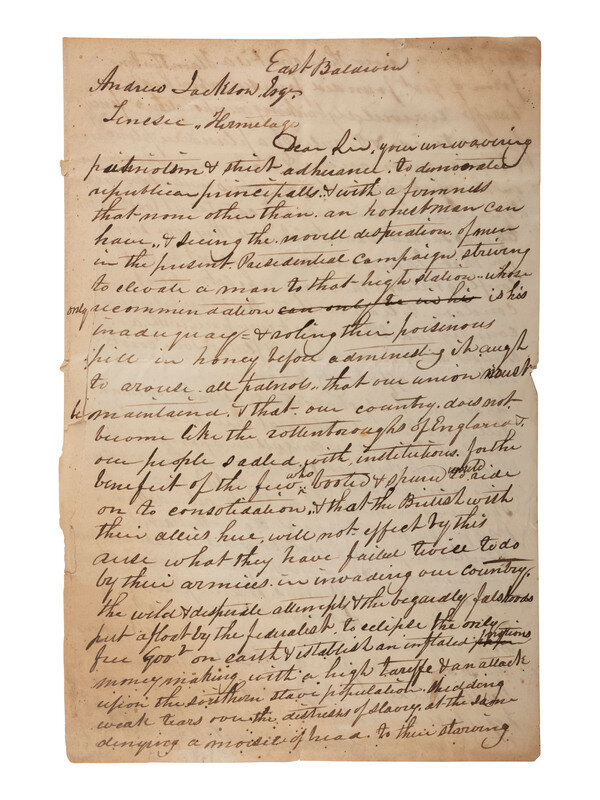 East Baldwin
Andrew Jackson Esqr.
Tenesee, Hermetage
Dear Sir, your unwavering
patriotism & strict adherance to democratic
republican principalls & with a firmness
that none other than an honest man can
have, & seeing the novell disperation of men
in the present Presidential Campaign striving
to elevate a man to that high station whose
only recommendation can only be in his is his
inadiquacy = & roling their poisinous
pill in honey before administering it. augh
to arouse all patriots, that our union must
be maintaind. & that our country does not
become like the rottenboroughs of England &
our people sadled with institutions for the
benefit of the few who booted & spured would ride
on to consolidation, & that the British with
their allies here, will not effect by this
ruse what they have failed twice to do
by their armies in invading our country,
the wild & disperate attempts & the begardly falshoods
put afloat by the federalist to eclipse the only
free Govr. on earth & establish an inflated
money making with a high tariffe & an attack
upon the southern slave population, shedding
weak tears over the distresses of slavery, at the same
denying a morsel of bread to their starving